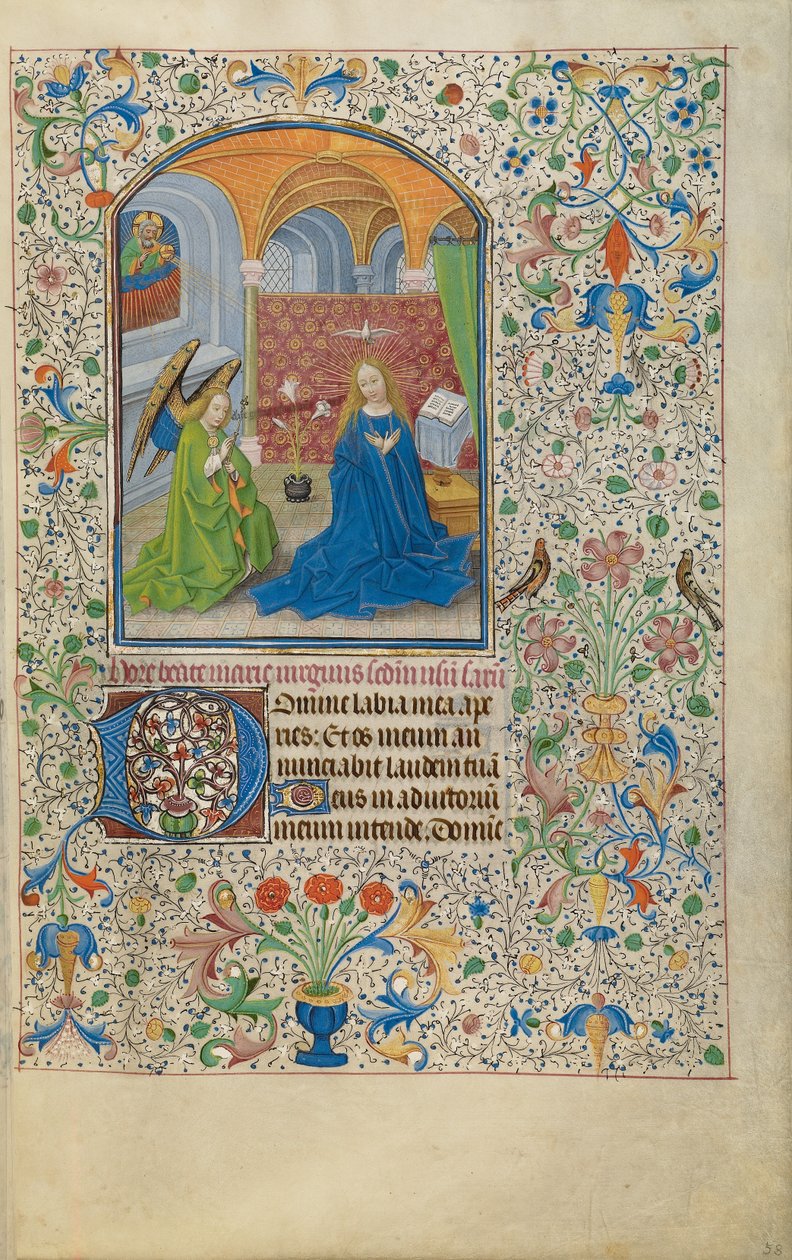 Hore beate marie virginis sedm usū sarū
Domine labia mea ape
ries: Et os meum an
nunciabit laudem tuā
Deus in adiutoriū
meum intende. Domine
58